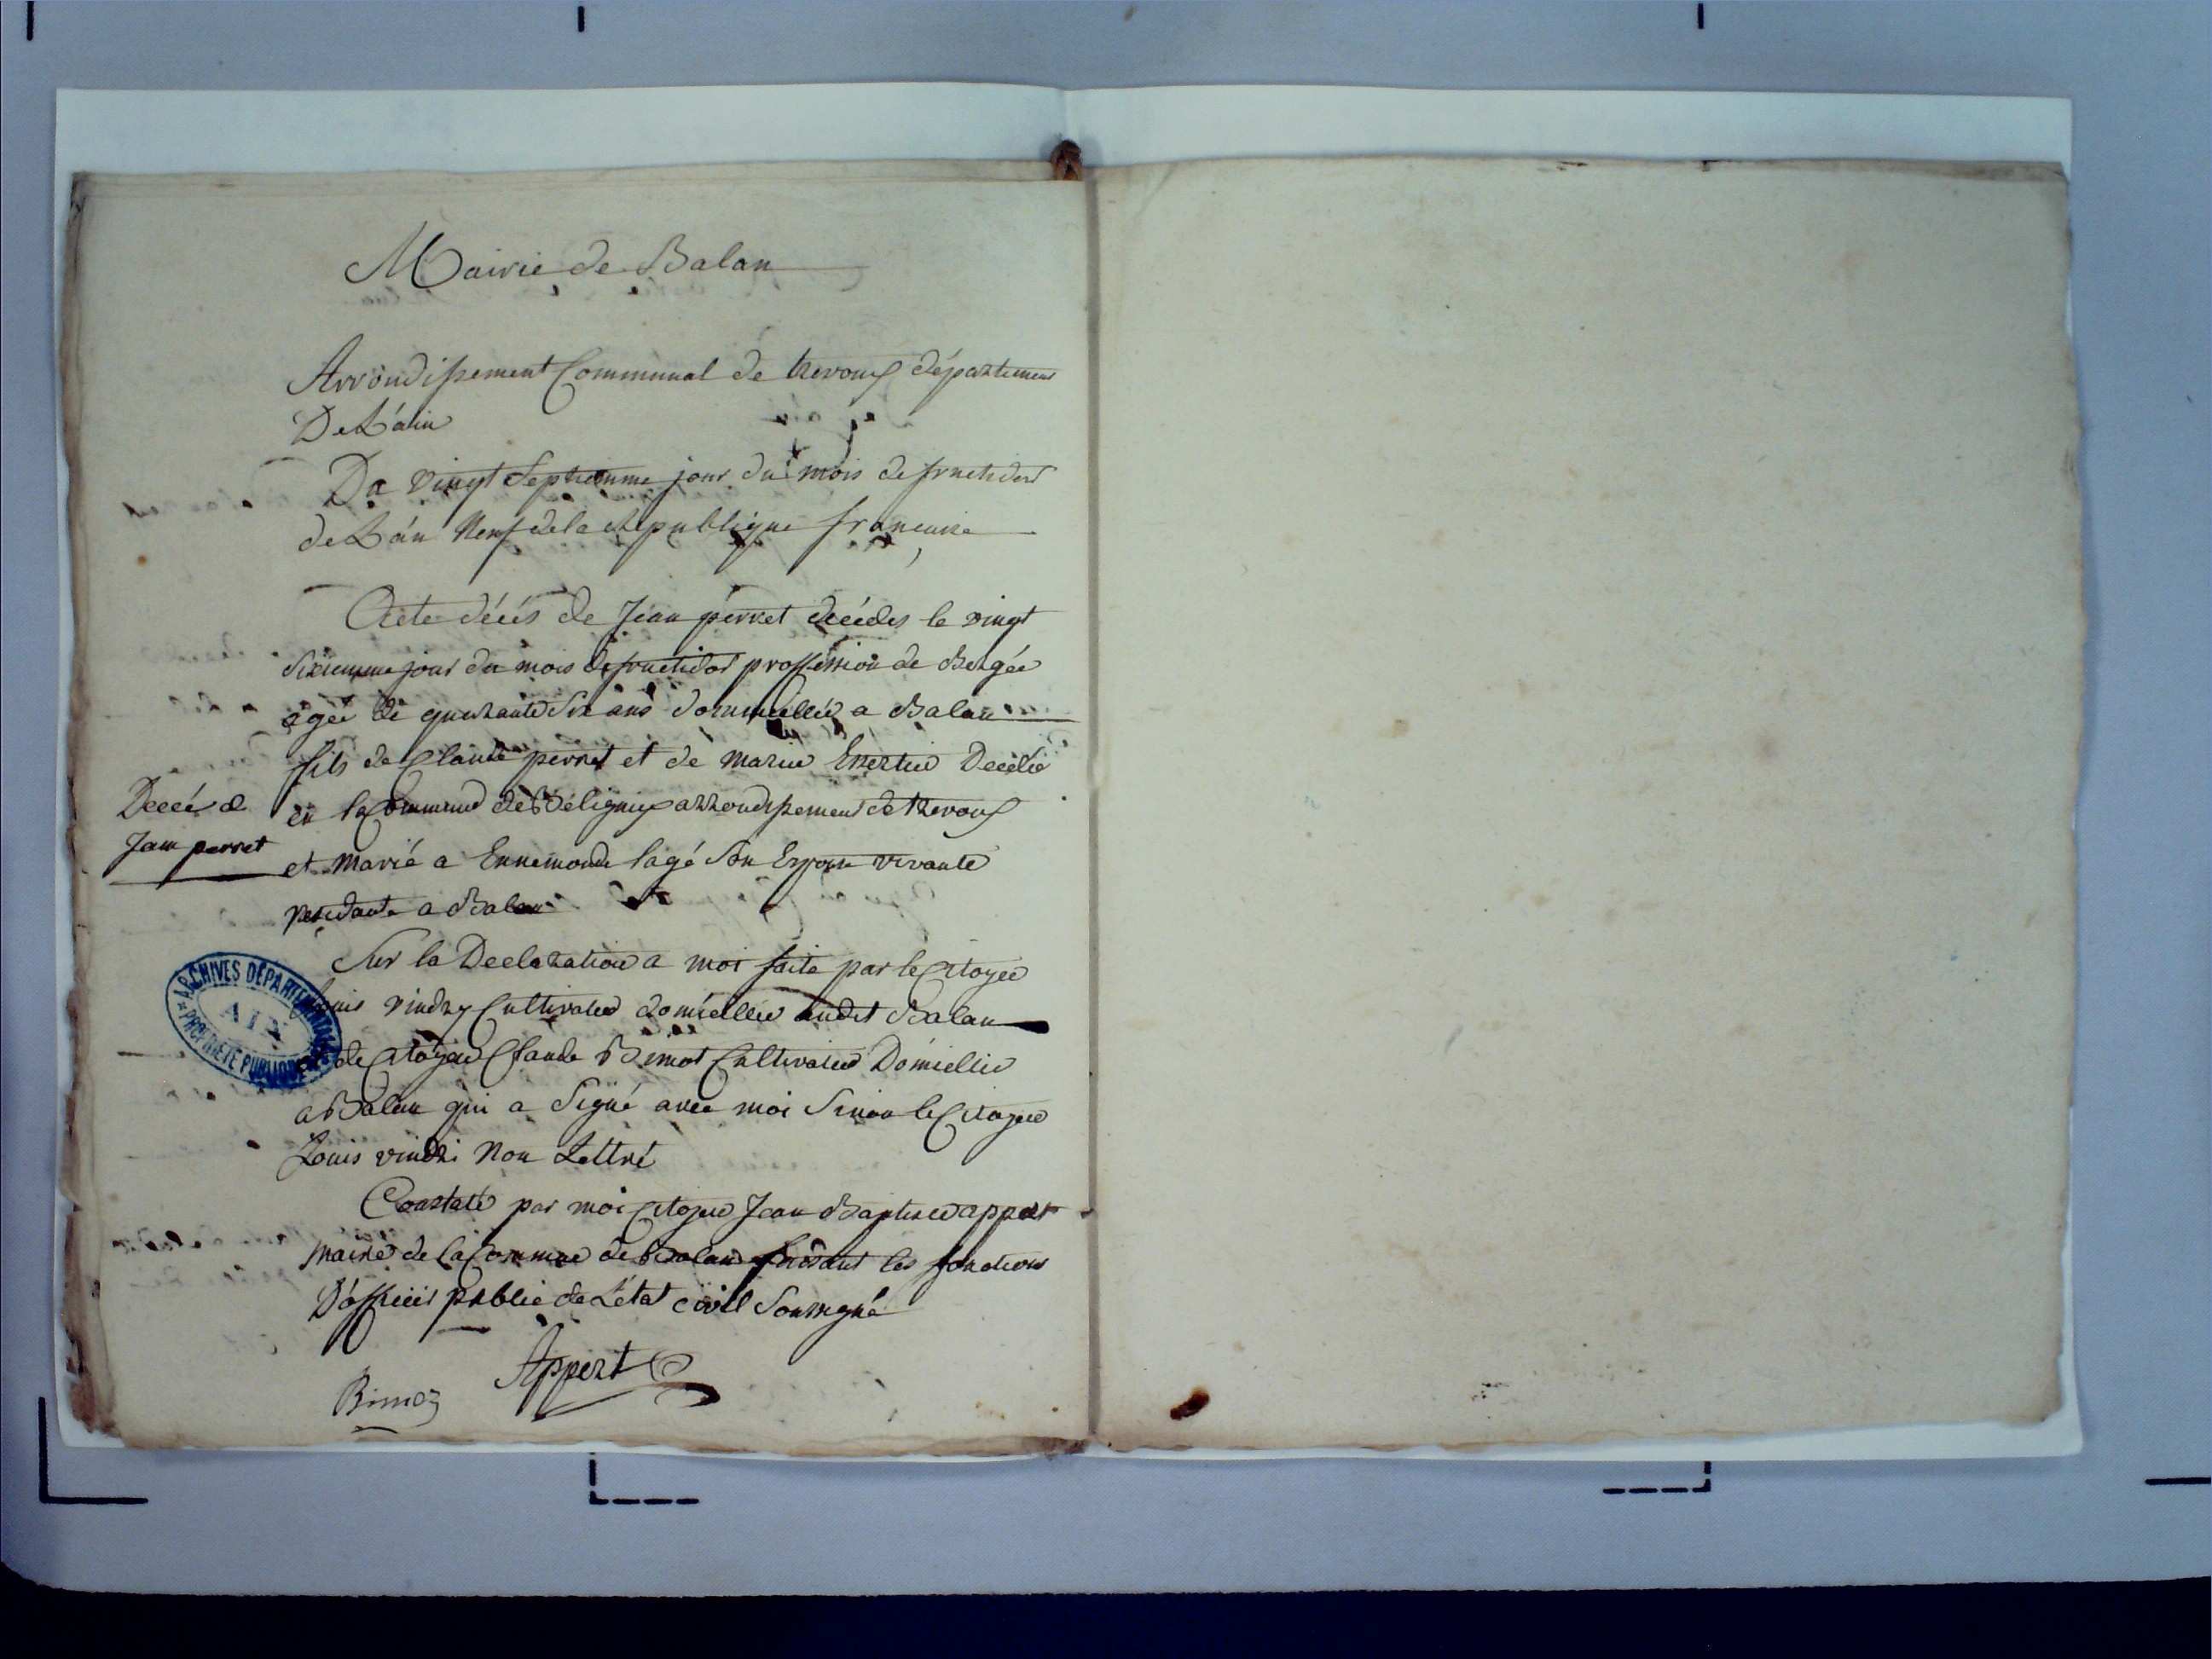 Mairie de Balan
Arrondissement Communal de trevoux département
De L'ain
Du vingt Septiemme jour du mois de fructidor
de L'an Neuf de la republique francaise
Acte décés de Jean perret décédes le vingt
Sixiemme jour du mois de fructidor proffession de Bergée
agée de quarante Six ans domicillié a Balan
fils de Claude perret et de marie Decedé
en la Commune de Béligneux arrondissement de trevoux
Decé de
Jean perret
et marié a Ennemonde lagé Son Epouse vivante
residante a Balan
Sur la Declaration a moi faite par le Citoyen
Louis vindry Cultivateur domicillié audit Balan
et de Citoyen Claude Bimot Cultivateur Domicillié
a Balan qui a Signé avec moi Sinon le Citoyen
Louis vindri Non Lettré
Constaté par moi Citoyen Jean Baptiste appert
maire de la Commune de Balan faisant les fonctions
D'officier public de L'état civil Soussigné
Appert
Bimoz
ARCHIVES DÉPARTEMENTALES
AIN
PROPRIÉTÉ PUBLIQUE